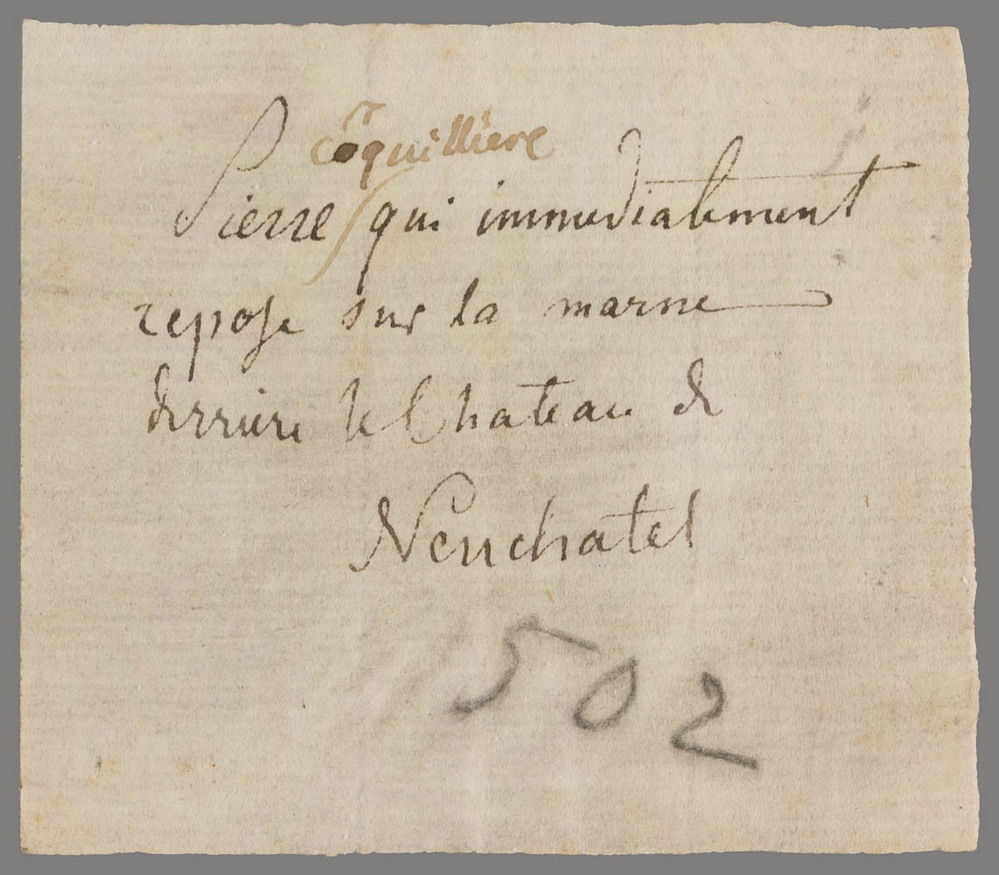 coquilliere
Pierre qui immediatement
repose sur la marne
derriere le Chateau de
Neuchatel
502